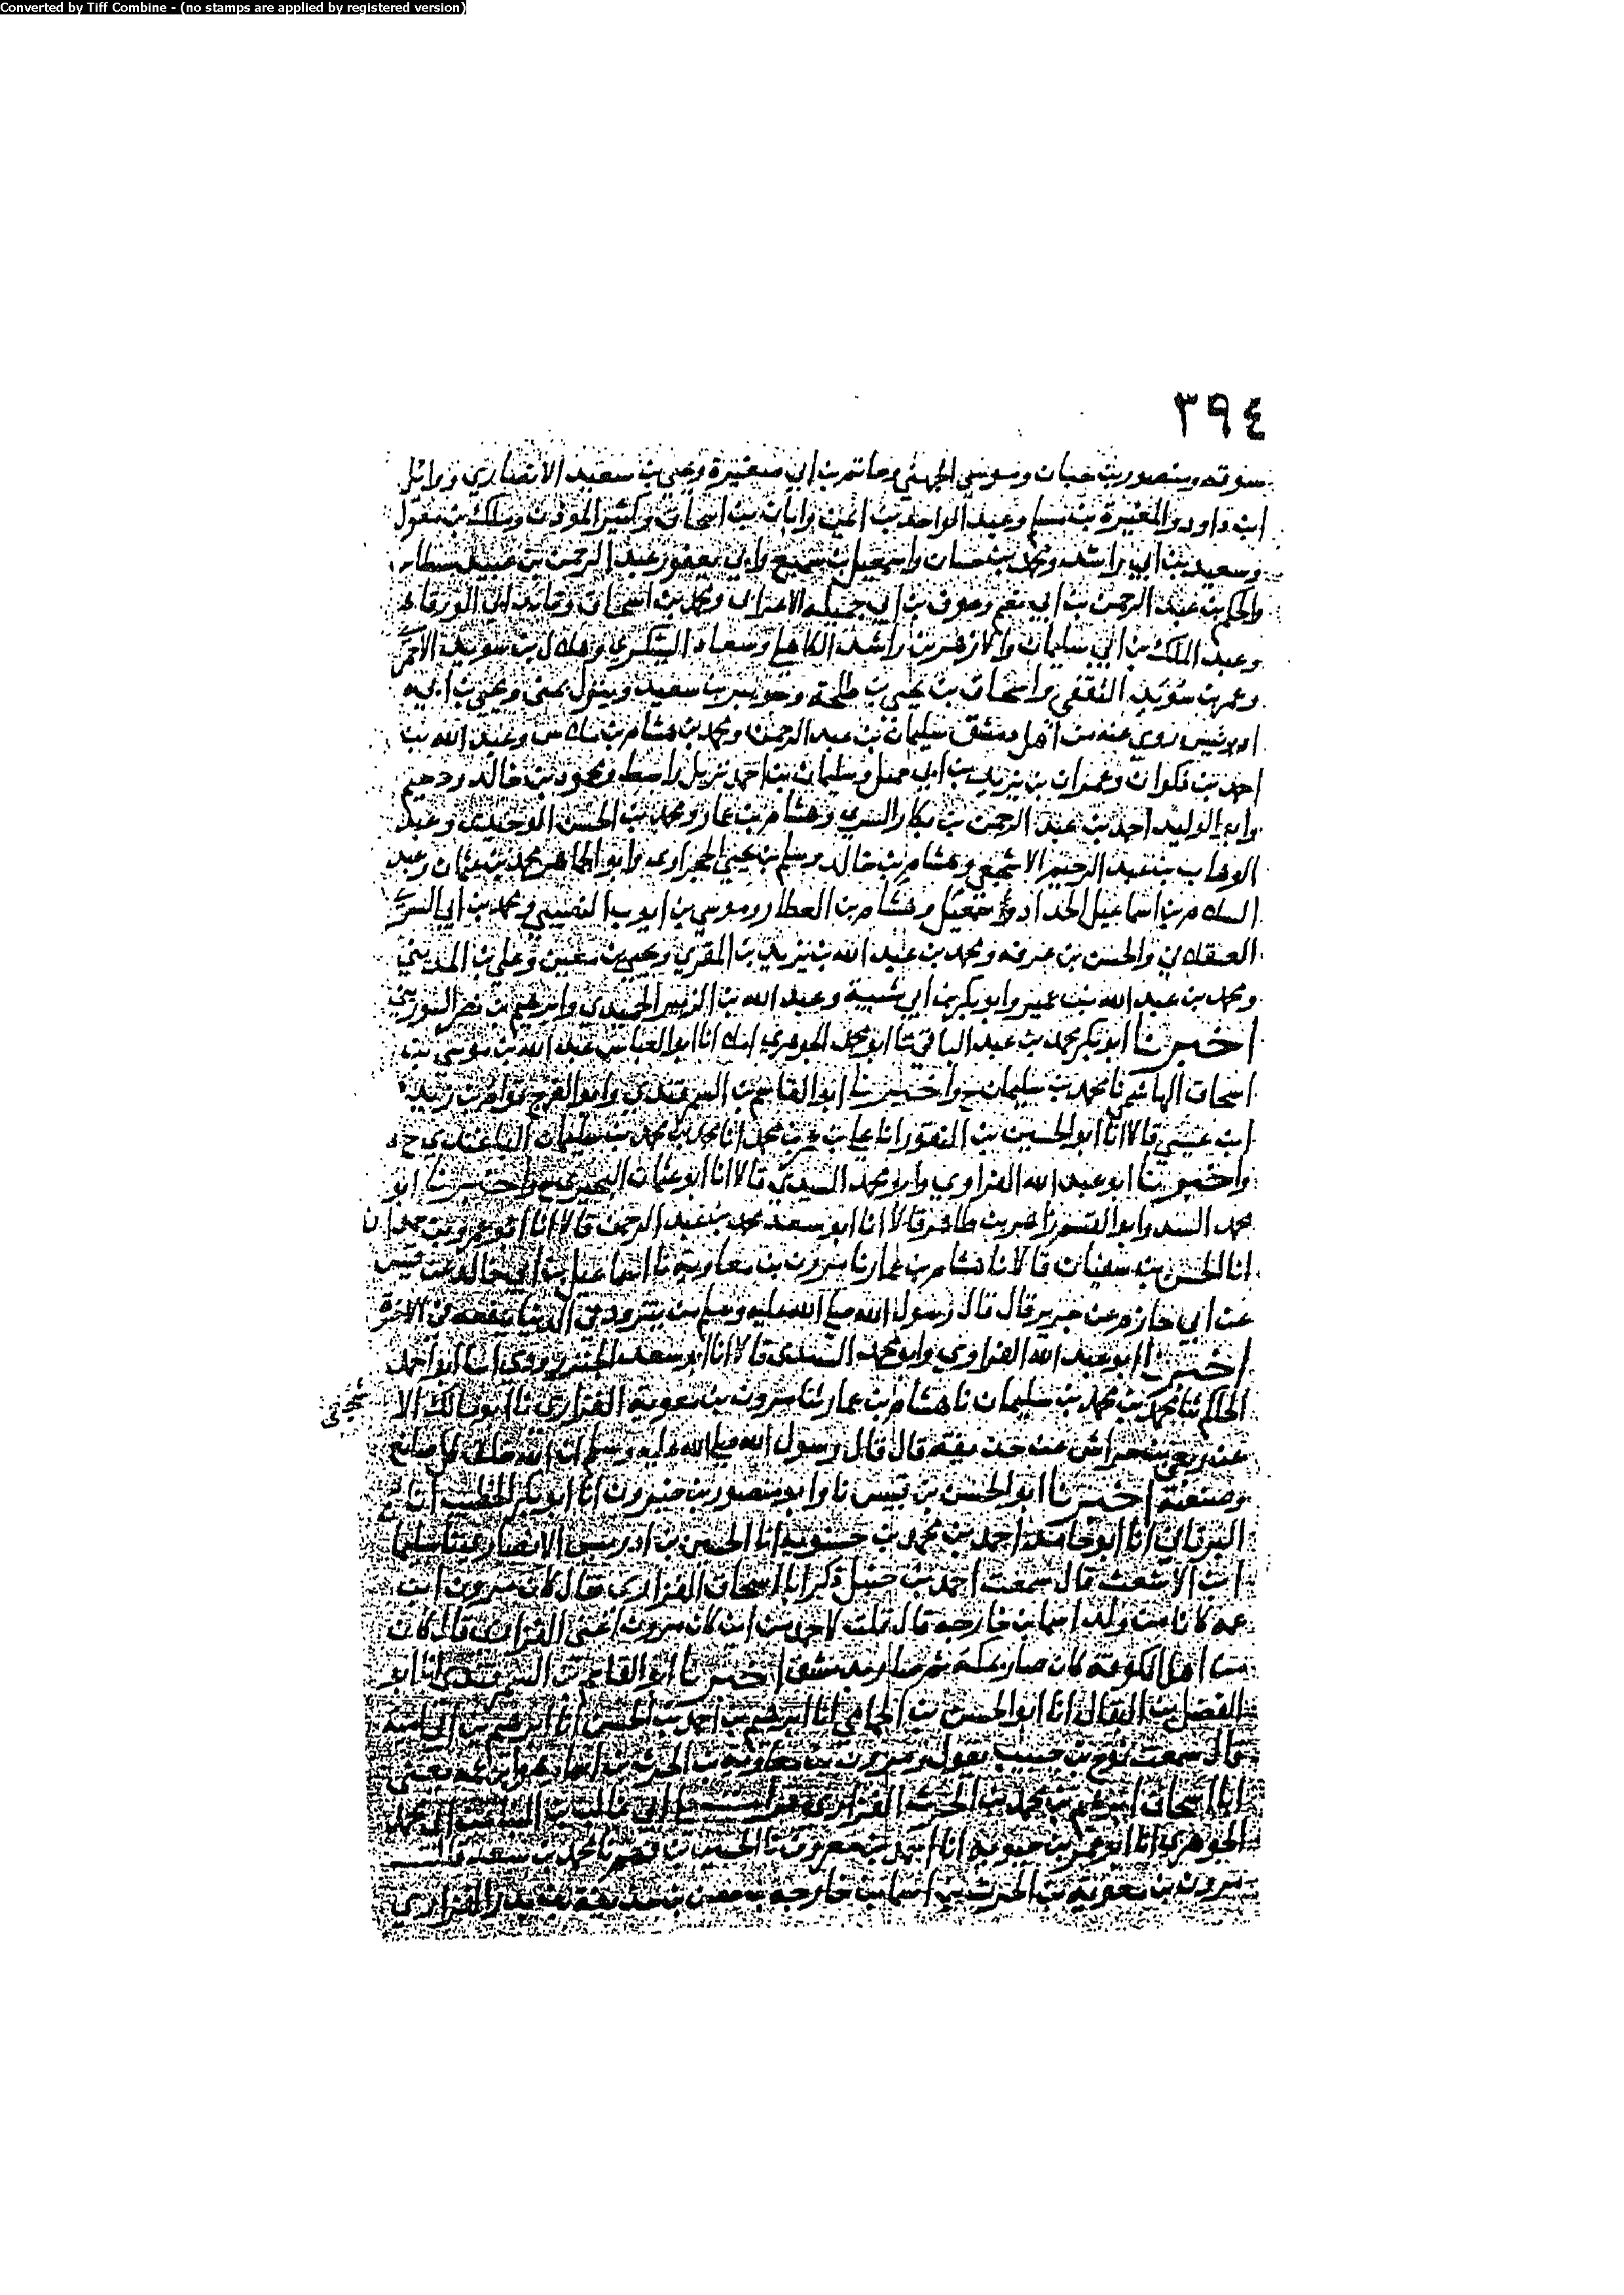 Converted by Tiff Combine - (no stamps are applied by registered version)
٣٩٤
سوقه ومنصور بن حيان وموسى الجهني وحاتم بن ابي صغيرة ويحيى بن سعيد الانصاري ووائل
ابن داود والمغيرة بن مسلم وعبد الواحد بن ايمن وابان بن اسحاق وكثير المؤذن ومالك بن مغول
وسعيد بن ابي راشد ومحمد بن حسان واسمعيل بن سميع وابي يعفور عبد الرحمن بن عبيد
والحكم بن عبد الرحمن بن ابي نعم وعوف بن ابي جميلة الاعرابي ومحمد بن اسحاق وفائد ابي الورقاء
وعبد الملك بن ابي سليمان والازهر بن راشد الكاهلي وسعاد اليشكري وهلال بن سويد الاحمري
وعمر بن سويد الثقفي واسحاق بن يحيى بن طلحة وجويبر بن سعيد وينزل بمنى ويحيى بن ابيه
روي عنه من اهل دمشق سليمان بن عبد الرحمن ومحمد بن هشام بن ملاس وعبد الله بن
احمد بن ذكوان وعمران بن يزيد بن ابي جميل وسليمان بن احمد نزيل واسط ومحمود بن خالد ودحيم
وابو الوليد احمد بن عبد الرحمن بن بكار البسري وهشام بن عمار ومحمد بن الحسن وعبد
الوهاب بن عبد الرحيم الاشجعي وهشام بن خالد وسلم بن يحيى الحجراوي وابو الجماهر محمد بن عثمان وعبد
السلام بن اسماعيل الحداد وهشام بن العطار وموسى بن ايوب النصيبي ومحمد بن ابي السري
العسقلاني والحسن بن عرفه ومحمد بن عبد الله بن يزيد بن المقري ويحيى بن معين وعلي بن المديني
ومحمد بن عبد الله بن نمير وابو بكر بن ابي شيبة وعبد الله بن الزبير الحميدي وابرهيم بن نصر السوريني
اخبرنا ابو بكر محمد بن عبد الباقي نا ابو محمد الجوهري املاء انا ابو العباس عبد الله بن موسى بن
اسحاق الهاشمي نا محمد بن سليمان ح واخبرنا ابو القاسم بن السمرقندي وابو الفرج قوام بن زيد
ابن عيسى قالا انا ابو الحسين بن النقور انا علي بن عمر بن محمد انا محمد بن محمد بن سليمان الباغندي ح
واخبرنا ابو عبد الله الفراوي وابو محمد السيدي قالا انا ابو عثمان البحيري ح واخبرنا ابو
محمد السيد وابو القسم زاهر بن طاهر قالا انا ابو سعد محمد بن عبد الرحمن قالا انا ابو عمرو بن حمدان
انا الحسن بن سفيان قالا نا هشام بن عمار نا مروان بن معاوية نا اسماعيل بن ابي خالد عن قيس
عن ابي حازم عن جرير قال قال رسول الله صلى الله عليه وسلم من يتزود في الدنيا ينفعه في الاخرة
اخبرنا ابو عبد الله الفراوي وابو محمد السيدي قالا انا ابو سعد الجنزرودي انا ابو احمد
الحاكم نا محمد بن محمد بن سليمان نا هشام بن عمار نا مرون بن معوية الفزاري نا ابو مالك الا
شجعي
عن ربعي بن حراش عن حذيفة قال قال رسول الله صلى الله عليه وسلم ان الله خلق كل صانع
وصنعته اخبرنا ابو الحسن بن قبيس نا وابو منصور بن خيرون انا ابو بكر الخطيب انا
البرقاني انا ابو حامد احمد بن محمد بن حسنويه انا الحسين بن ادريس الانصاري نا سليما
ابن الاشعث قال سمعت احمد بن حنبل ذكر ابا اسحاق الفزاري فقال كان مرون ابن
عمه كانا من ولد اسما بن خارجه قال قلت لاحمد من اين كان مرون اعني الفزاري قال كان
من اهل الكوفة كان صار بمكة ثم صار بدمشق اخبرنا ابو القاسم بن السمرقندي انا ابو
الفضل بن البقال انا ابو الحسن بن الحمامي انا ابرهيم بن احمد بن الحسن انا ابرهيم بن ابي امية
قال سمعت نوح بن حبيب يقول ومرون بن معاوية بن الحرث بن اسما وهو ابن عمه يعني
ابا اسحاق ابرهيم بن محمد بن الحرث الفزاري قرات على ابي غالب بن البنا عن ابي محمد
الجوهري انا ابو عمر بن حيويه انا احمد بن معروف نا الحسين بن فهم نا محمد بن سعد قال
مرون بن معوية بن الحرث بن اسما بن خارجه بن حصن بن حذيفة بن بدر الفزاري